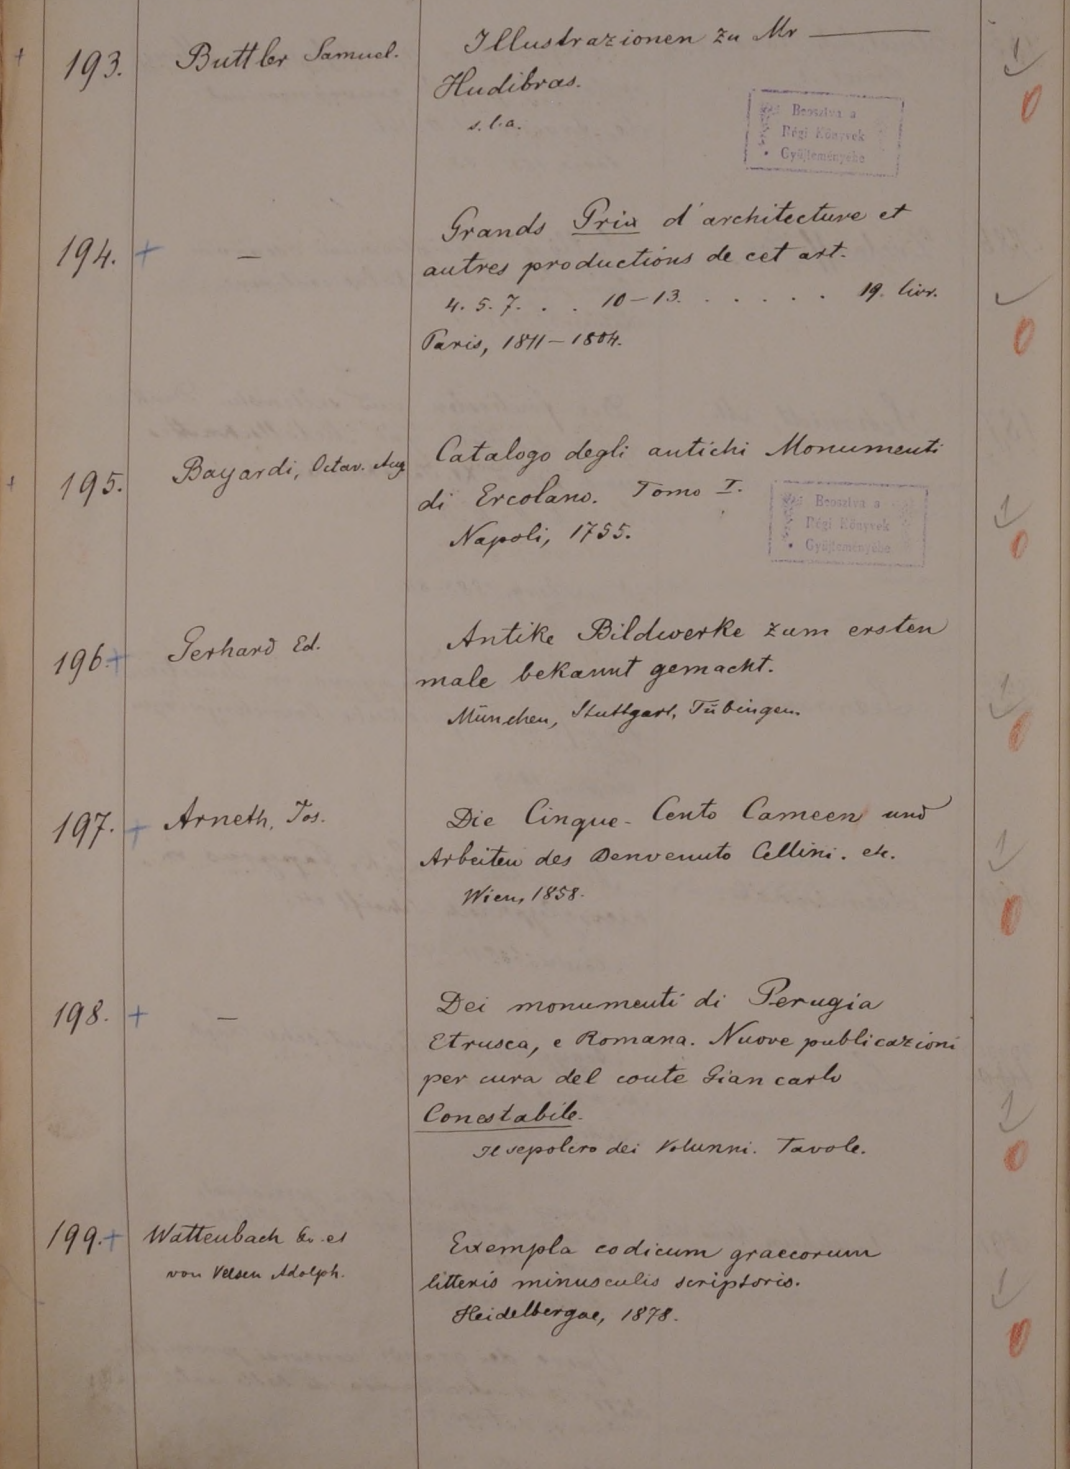 193.
Buttler Samuel.
Illustrazionen zu Mr ———
Hudibras.
s. l. a.
Beosztva a
Régi Könyvek
Gyüjteményébe
194. +
—
Grands Prix d'architecture et
autres productions de cet art.
4. 5. 7. . . 10-13. . . . . . . 19. livr.
Paris, 1811-1804.
195.
Bayardi, Octav. Aug
Catalogo degli antichi Monumenti
di Ercolano. Tomo I.
Napoli, 1755.
Beosztva a
Régi Könyvek
Gyüjteményébe
196. +
Gerhard Ed.
Antike Bildwerke zum ersten
male bekannt gemacht.
München, Stuttgart, Tübingen.
197. +
Arneth, Jos.
Die Cinque-Cento Cameen und
Arbeiten des Benvenuto Cellini. etc.
Wien, 1858.
198. +
—
Dei monumenti di Perugia
Etrusca, e Romana. Nuove publicazioni
per cura del conte Giancarlo
Conestabile.
Il sepolcro dei Volunni. Tavole.
199. +
Wattenbach et
von Velsen Adolph.
Exempla codicum graecorum
litteris minusculis scriptoris.
Heidelbergae, 1878.